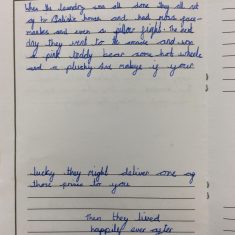 When the laundry was all done they all set
to Catistic house and had more face-
masks and even a pillow fight. The next
day they went to the arcade and won
a pink teddy bear some hot wheels
and a plushy. And maybe if your
lucky they might deliver one of
those prizes to you
Then they lived
happily ever after